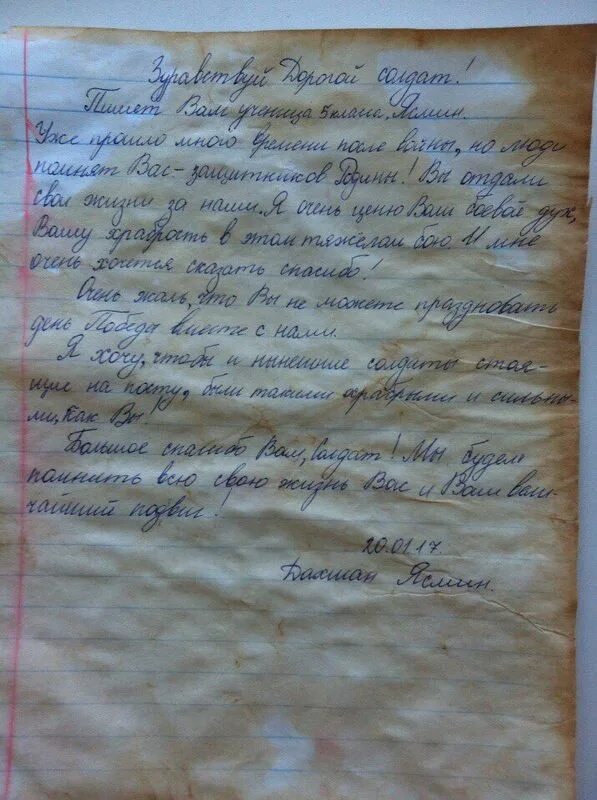 Здравствуй Дорогой солдат!
Пишет Вам ученица 5 класса, Ясмин.
Уже прошло много времени после войны, но люди
помнят Вас-защитников Родины! Вы отдали
свои жизни за нами. Я очень ценю Ваш боевой дух,
Вашу храбрость в этом тяжёлом бою И мне
очень хочется сказать спасибо!
Очень жаль, что Вы не можете праздновать
день Победы вместе с нами.
Я хочу, чтобы и нынешние солдаты стоя-
щие на посту, были такими храбрыми и сильны-
ми, Как Вы!
Большое спасибо Вам, Солдат! Мы будем
помнить всю свою жизнь Вас и Ваш вели-
чайший подвиг.
20.01.17.
Дахман Ясмин.